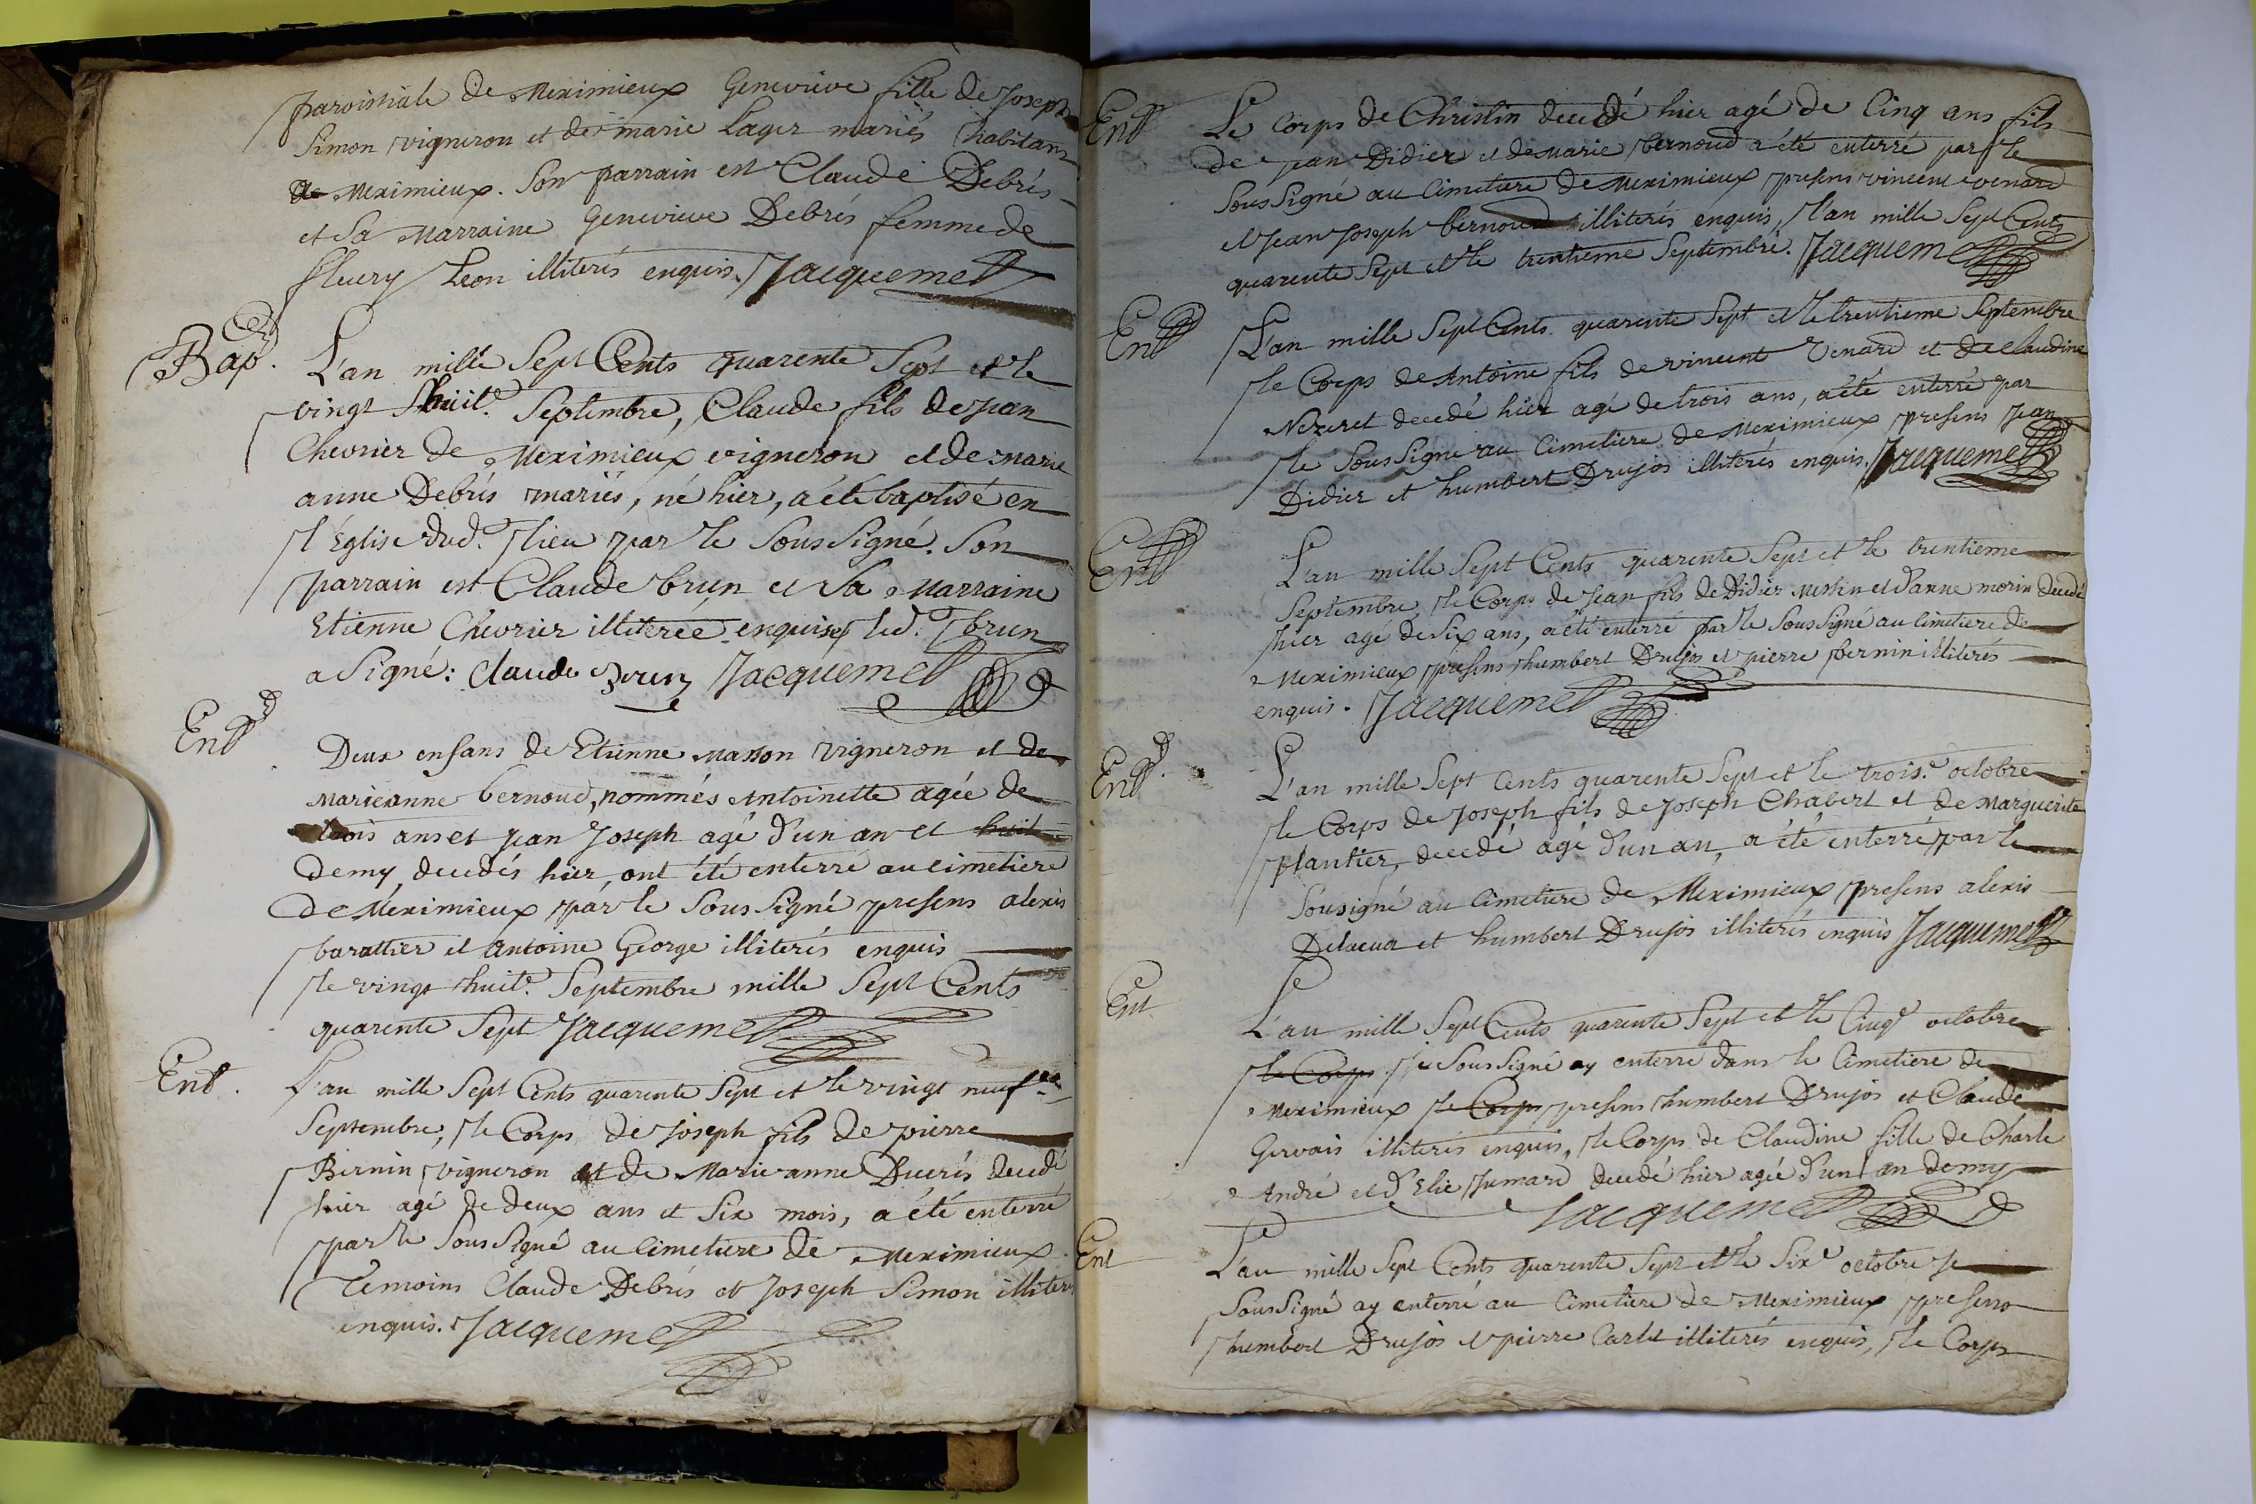 paroissiale de Meximieux Genevieve fille de Joseph
Simon vigneron et de marie Lager mariés habitans
de Meximieux. Son parrain est Claude Debrés
et Sa Marraine Genevieve Debrés femme de
fleury Leon illiterés enquis. Jacquemet
Bap.
L'an mille Sept Cents quarente Sept et le
vingt huit.e Septembre, Claude fils de jean
Chevrier de Meximieux vigneron et de marie
anne Debrés mariés, né hier, a été baptisé en
l'Eglise dud. lieu par le Soussigné. Son
parrain est Claude brun et Sa Marraine
Etienne Chevrier illiterée enquise, led. brun
a Signé: Claude Brun Jacquemet
Ent
Deux enfans de Etienne Masson vigneron et de
Marieanne bernoud, nommés Antoinette agée de
trois ans et jean Joseph agé d'un an et huit
demy, decedés hier, ont été enterré au cimetiere
de Meximieux par le Soussigné presens alexis
barattier et antoine George illiterés enquis
le vingt huit.e Septembre mille Sept Cents
quarente Sept Jacquemet
Ent.
L'an mille Sept Cents quarente Sept et le vingt neuf.e
Septembre, le Corps de joseph fils de pierre
Bernin vigneron et de Marieanne Ducrés decedé
hier agé de deux ans et Six mois, a été enterré
par le Soussigné au Cimetiere de Meximieux
Temoins Claude Debrés et joseph Simon illiter
enquis. Jacquemet
Ent
Le Corps de Christin decedé hier agé de Cinq ans fils
de jean Didier et de Marie bernoud a été enterré par le
Soussigné au Cimetiere de Meximieux presens vincent venard
et Jean Joseph bernoud illiterés enquis, l'an mille Sept Cents
quarente Sept et le trentieme Septembre. Jacquemet
Ent
L'an mille Sept Cents quarente Sept et le trentieme Septembre
le Corps de Antoine fils de vincent Venard et de Claudine
Nezeret decedé hier agé de trois ans, a été enterré par
le Soussigné au Cimetiere de Meximieux presens Jean
Didier et humbert Drujos illiterés enquis. Jacquemet
Ent
L'an mille Sept Cents quarente Sept et le trentieme
Septembre, le Corps de Jean fils de Didier Merlin et d'anne morin decedé
hier agé de Six ans, a été enterré par le Soussigné au Cimetiere de
Meximieux presens humbert Drujos et pierre bernin illiterés
enquis. Jacquemet
Ent.
L'an mille Sept Cents quarente Sept et le trois.e octobre
le Corps de Joseph fils de Joseph Chabert et de Marguerite
plantier, decedé agé d'un an, a été enterré par le
Sousigné au Cimetiere de Meximieux presens alexis
Delacua et humbert Drujos illiterés enquis Jacquemet
Ent
L'an mille Sept Cents quarente Sept et le Cinq.e octobre
le Corps je Soussigné ay enterré dans le Cimetiere de
Meximieux le Corps presens humbert Drujos et Claude
Gervais illiterés enquis, le Corps de Claudine fille de Charle
André et d'Elie Jumard decedé hier agée d'un an demy
Jacquemet
Ent
L'an mille Sept Cents quarente Sept et le Six.e octobre je
Soussigné ay enterré au Cimetiere de Meximieux presens
humbert Drujos et pierre Carlet illiterés enquis, le Corps